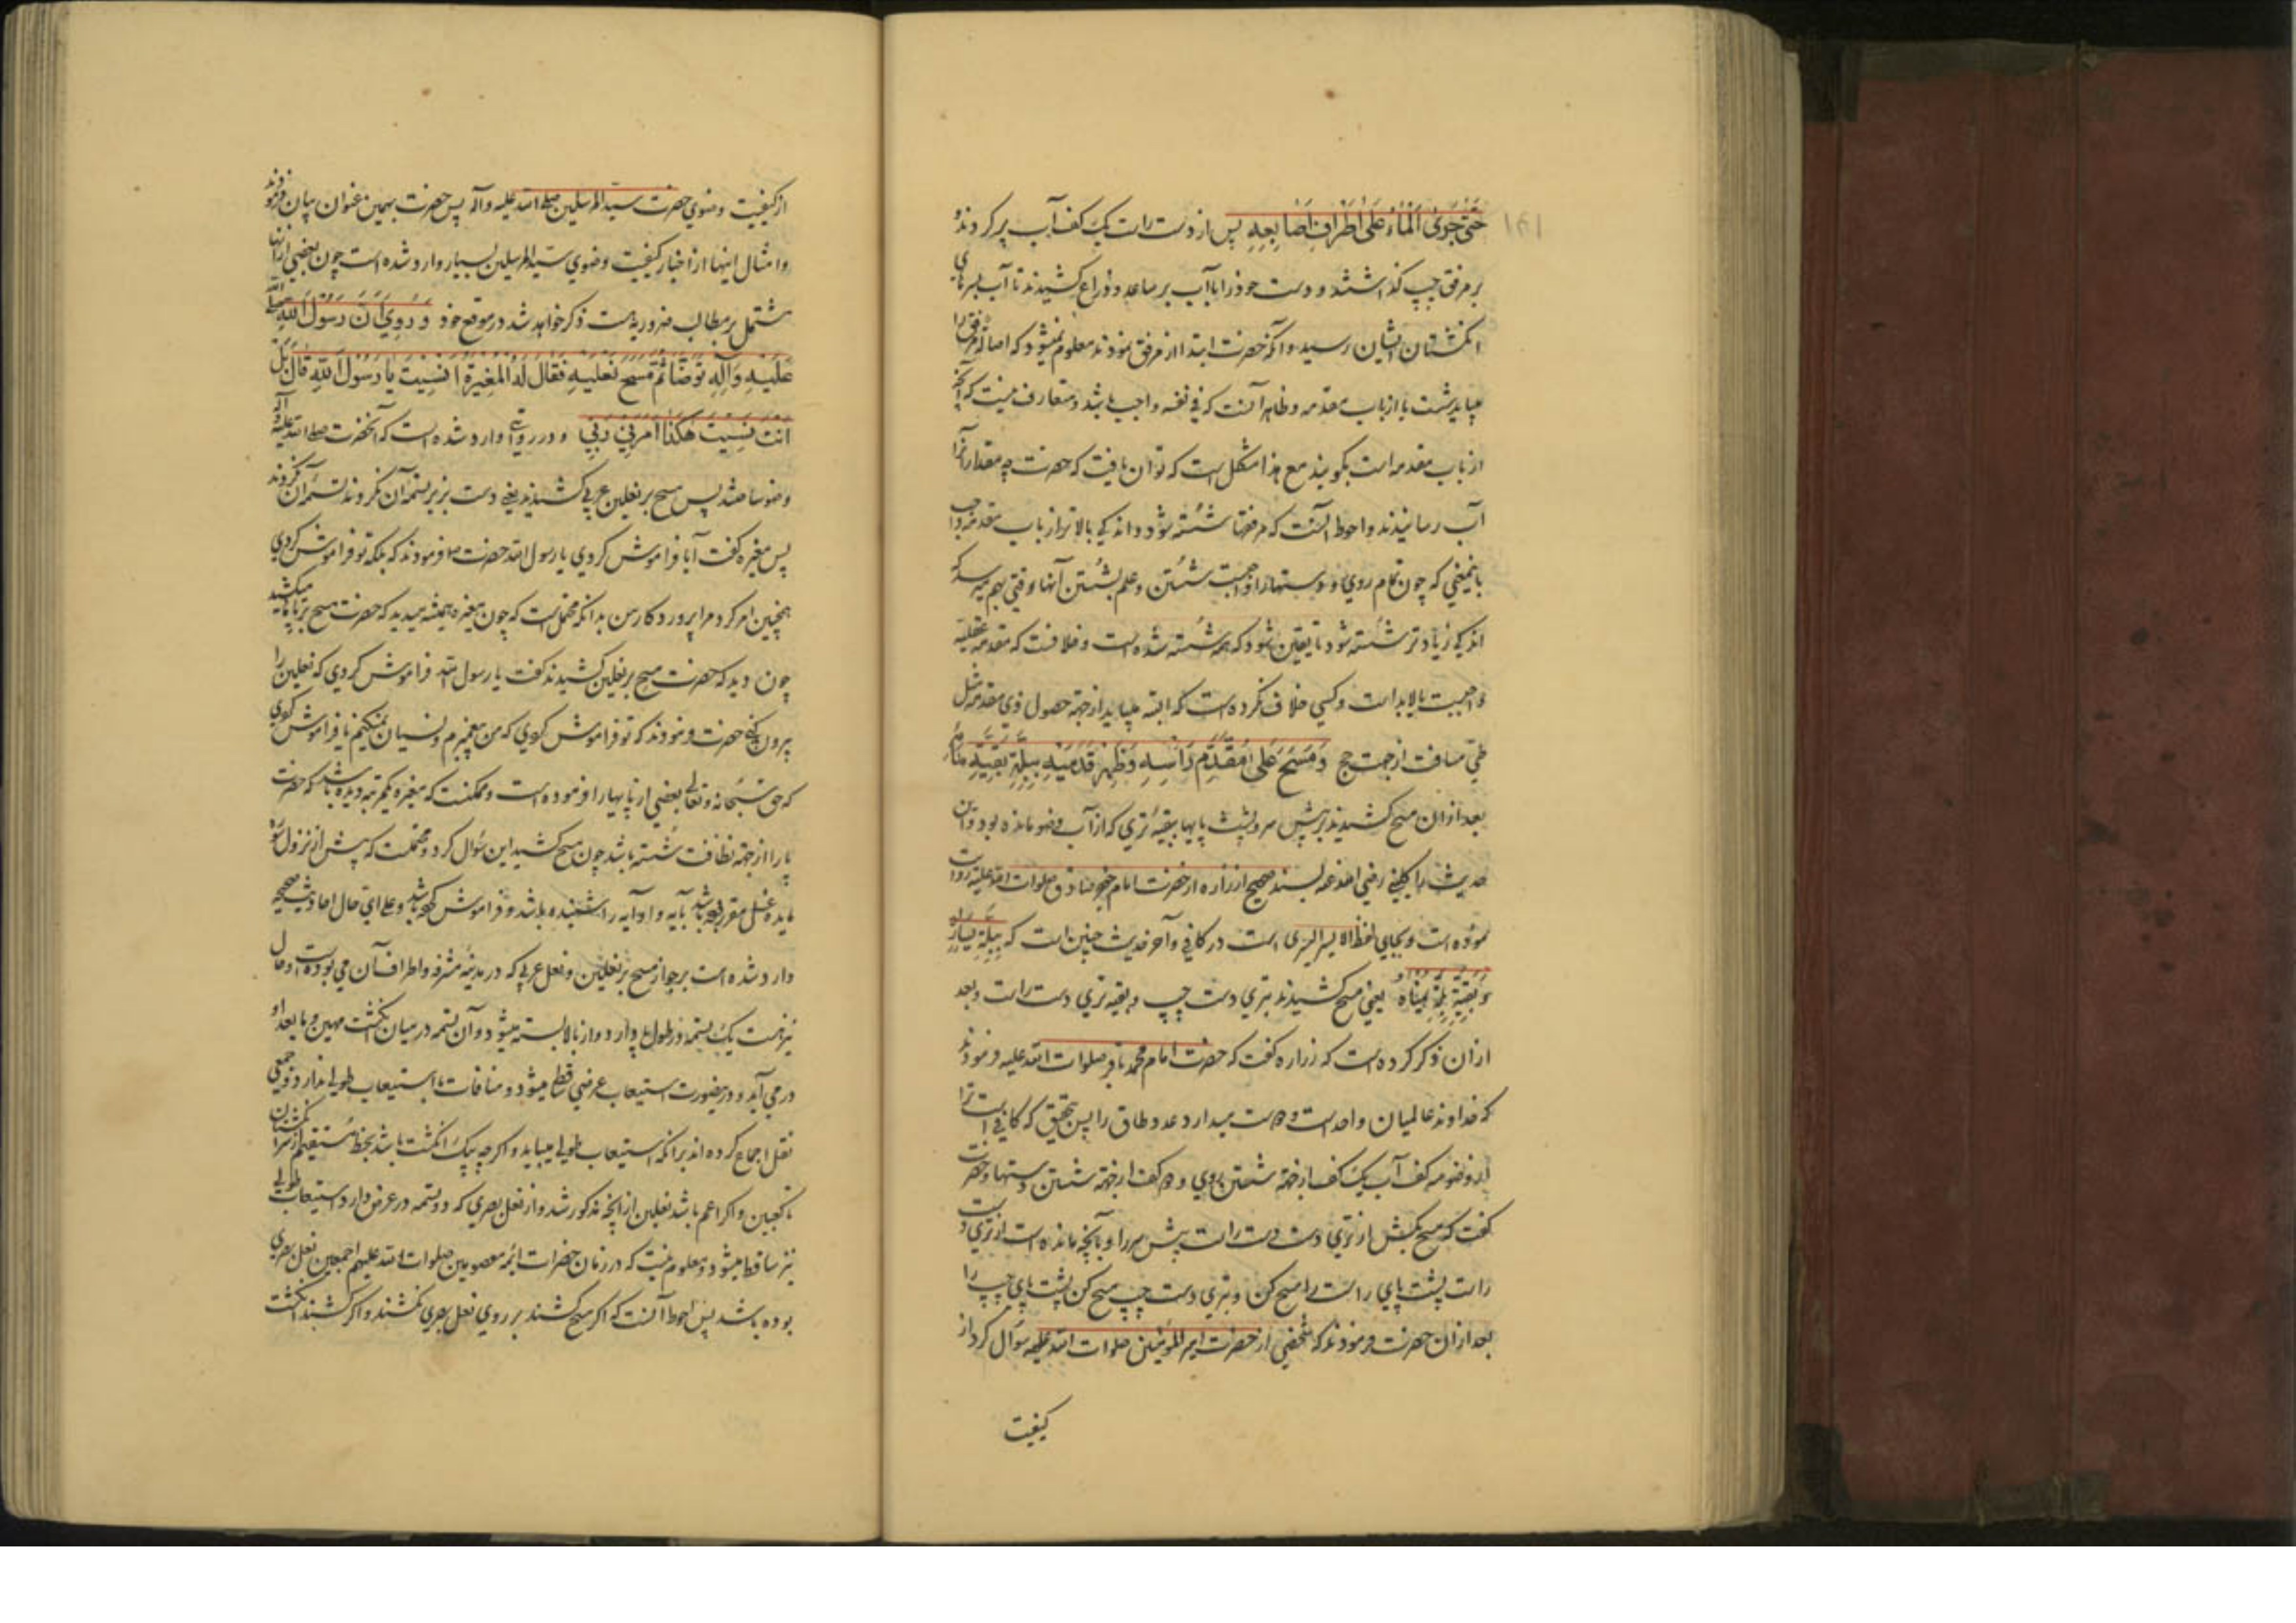 حَتّىٰ جَرَىٰ المَاءُ عَلىٰ اَطرافِ اَصَابِعِهِ پس از دست راست یک کف آب پر کردند و
بر مرفق چپ گذاشتند و دست خود را با آب بر ساعد و ذراع کشیدند تا آب بسرهای
انگشتان ایشان رسید و آنکه حضرت ابتدا از مرفق نمودند معلوم نمیشود که اصالة مرفق را
میباید شست یا از باب مقدمه و ظاهرا آنست که فی نفسه واجب باشد و متعارف نیست که آنچه
از باب مقدمه است بگویند مع هذا مشکل است که توان یافت که حضرت چه مقدار آنرا
آب رسانیدند و احوط آنست که مرفقها شسته شود و اندکی بالاتر از باب مقدمه واجب
باینمعنی که چون تمام روی و دستها را واجبست شستن و علم بشستن آنها وقتی بهم میرسد که
اندکی زیادتر شسته شود تا یقین شود که همه شسته شده است و خلافست که مقدمه عقلیه
واجبست یا لابد است و کسی خلاف نکرده است که البته میباید از جهة حصول ذی مقدمه مثل
طی مسافت از جهت حج وَ مَسَحَ عَلىٰ مُقَدَّمِ رَأسِهِ وَ ظَهرِ قَدَمَيهِ بِبِلَّةِ بَقِيَّةِ مَائِهِ
بعد از ان مسح کشیدند بر پیش سر و پشت پایها ببقیه تری که از آب وضو مانده بود و این
حدیث را کلینی رضی الله عنه بسند صحیح از زراره از حضرت امام جعفر صادق صلوات الله علیه روایت
نموده است و بجای لفظ الایسر الیسری است در کافی و آخر حدیث چنین است که بِبِلَّةِ يَسارِهِ
وَ بَقِيَّةِ بِلَّةِ يُمنَاهُ یعنی مسح کشیدند بتری دست چپ و بقیه تری دست راست و بعد
از ان ذکر کرده است که زراره گفت که حضرت امام محمد باقر صلوات الله علیه فرمودند
که خداوند عالمیان واحد است و دوست میدارد عدد طاق را پس بتحقیق که کافی است ترا
در وضو سه کف آب یک کف از جهة شستن روی و دو کف از جهة شستن دستها و حضرت
گفت که مسح میکش از تری دست راست پیش سر را و بآنچه مانده است از تری دست
راست پشت پای راست را مسح کن و بتری دست چپ مسح کن پشت پای چپ را
بعد از ان حضرت فرمودند که شخصی از حضرت امیر المؤمنین صلوات الله علیه سؤال کرد از
کیفیت
از کیفیت وضوی حضرت سید المرسلین صلی الله علیه و آله پس حضرت بهمین عنوان بیان فرمودند
و امثال اینها از اخبار کیفیت وضوی سید المرسلین بسیار وارد شده است چون بعضی از آنها
مشتمل بر مطالب ضروریه است ذکر خواهد شد در موقع خود وَ رُوِيَ اَنَّ رَسُولَ اللهِ صلی الله
عَلَيهِ وَ آلِهِ تَوَضَّأَ ثُمَّ مَسَحَ نَعلَيهِ فَقالَ لَهُ المُغِيرَةُ اَنَسِيتَ يَا رَسُولَ اللهِ قَالَ بَل
اَنتَ نَسِيتَ هكَذا اَمَرَنِي رَبِّي و در روایتی وارد شده است که آنحضرت صلی الله علیه و آله
وضو ساختند پس مسح بر نعلین عربی کشیدند یعنی دست بزیر تسمه آن نکردند
پس مغیره گفت آیا فراموش کردی یا رسول الله حضرت فرمودند که بلکه تو فراموش کردی
همچنین امر کرد مرا پروردگار من بدانکه محتمل است که چون مغیره همیشه میدید که حضرت مسح بر پا میکشید
چون دید که حضرت مسح بر نعلین کشیدند گفت یا رسول الله فراموش کردی که نعلین را
بیرون کنی حضرت فرمودند که تو فراموش کردی که من پیغمبرم و نسیان نمیکنم یا فراموش کردی
که حق سبحانه و تعالی بعضی از پایها را فرموده است و ممکنست که مغیره یکمرتبه دیده باشد که حضرت
پا را از جهة نظافت شسته باشد چون مسح کشید این سؤال کرد و محتملست که پیش از نزول سوره
مایده غسل مقرر بوده باشد بآیه و او آیه را شنیده باشد و فراموش کرده باشد و علی ای حال احادیث صحیحه
وارد شده است بر جواز مسح بر نعلین و نعل عربی که در مدینه مشرفه و اطراف آن می بوده است و حال
نیز هست یک تسمه در طول پا دارد و از بالا بسته میشود و آن تسمه در میان انگشت مهین و ما بعد او
در می آید و در اینصورت استیعاب عرضی قطع میشود و منافات با استیعاب طولی ندارد و جمعی
نقل اجماع کرده اند بر آنکه استیعاب طولی میباید و اگر چه بیک انگشت باشد بخط مستقیم از سر انگشتان
تا کعبین و اگر اعم باشد نعلین از آنچه مذکور شد و از نعل بصری که دو تسمه در عرض دارد استیعاب طولی
نیز ساقط میشود و معلوم نیست که در زمان حضرات ائمه معصومین صلوات الله علیهم اجمعین نعل بصری
بوده باشد پس احوط آنست که اگر مسح کشند بر روی نعل بصری نکشند و اگر کشند انگشت